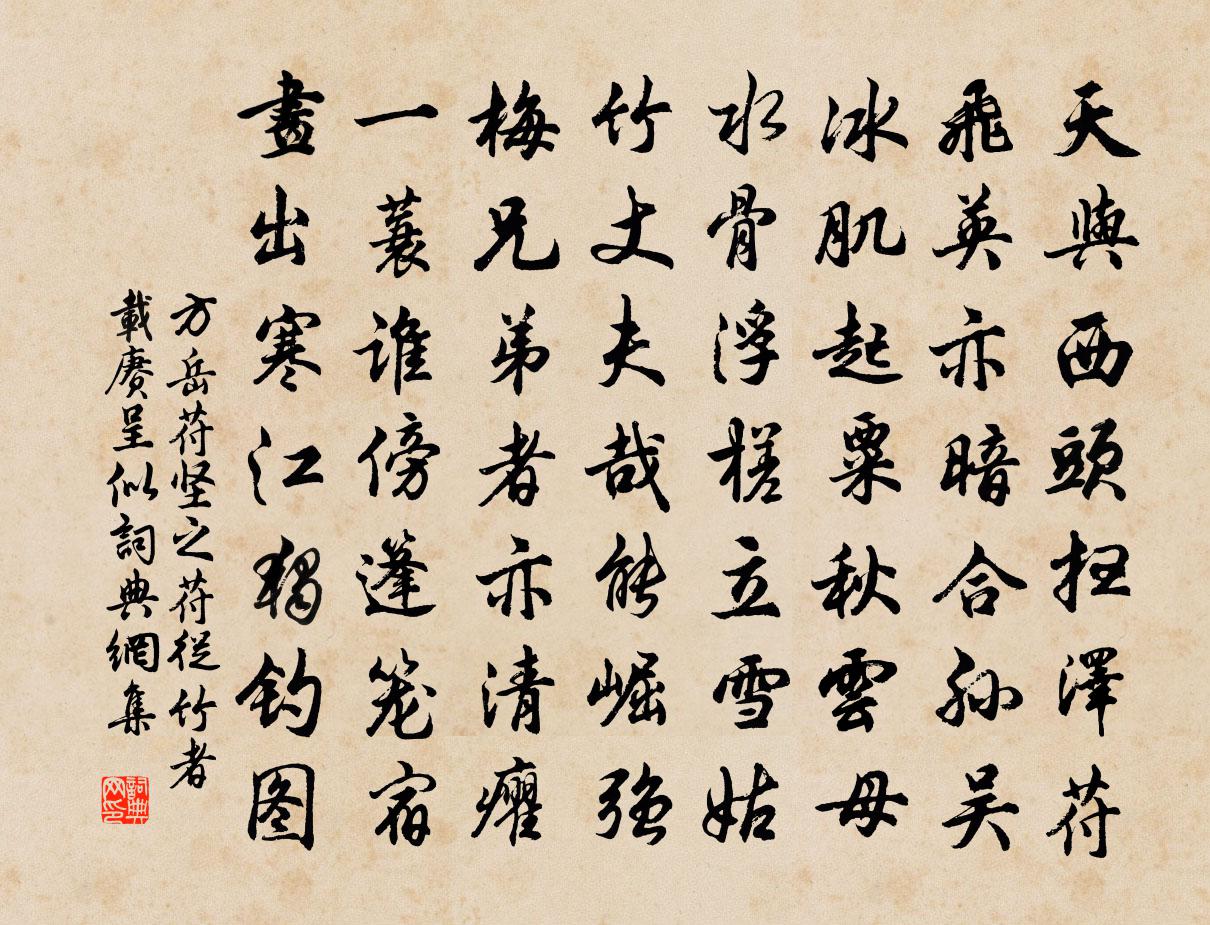 天與西頭抂澤苻
飛英亦暗合孙吴
冰肌起粟秋雲母
水骨浮槎立雪姑
竹丈夫哉能崛强
梅兄弟者亦清癯
一蓑誰傍篷笼宿
畫出寒江獨钓图
方岳苻坚之苻從竹者
載赓呈似詞典網集
詞典
网印